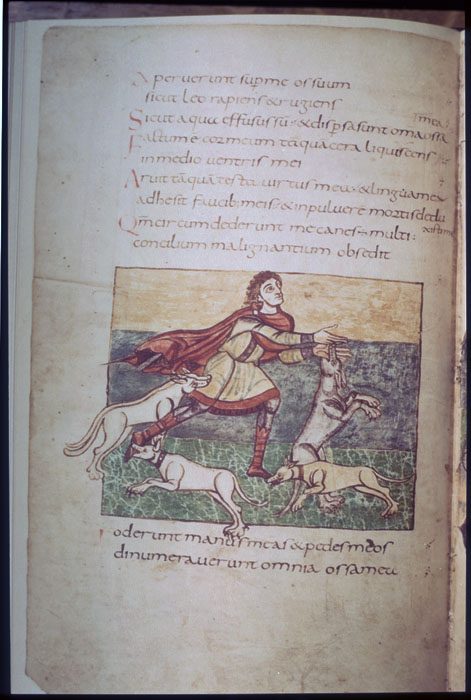 Aperuerunt sup me os suum
sicut leo rapiens & rugiens
mea:
Sicut aqua effusus sū · & dispsa sunt omā ossa
Factum ē cor meum tāquā cera liquescens
in medio uentris mei
Aruit tāquā testa uirtus mea · & lingua mea
adhesit faucib; meis · & in puluerē mortis dedu
xisti me
Qm̄ circumdederunt me canes multi:
concilium malignantium obsedit
foderunt manus meas & pedes meos
dinumerauerunt omnia ossa mea